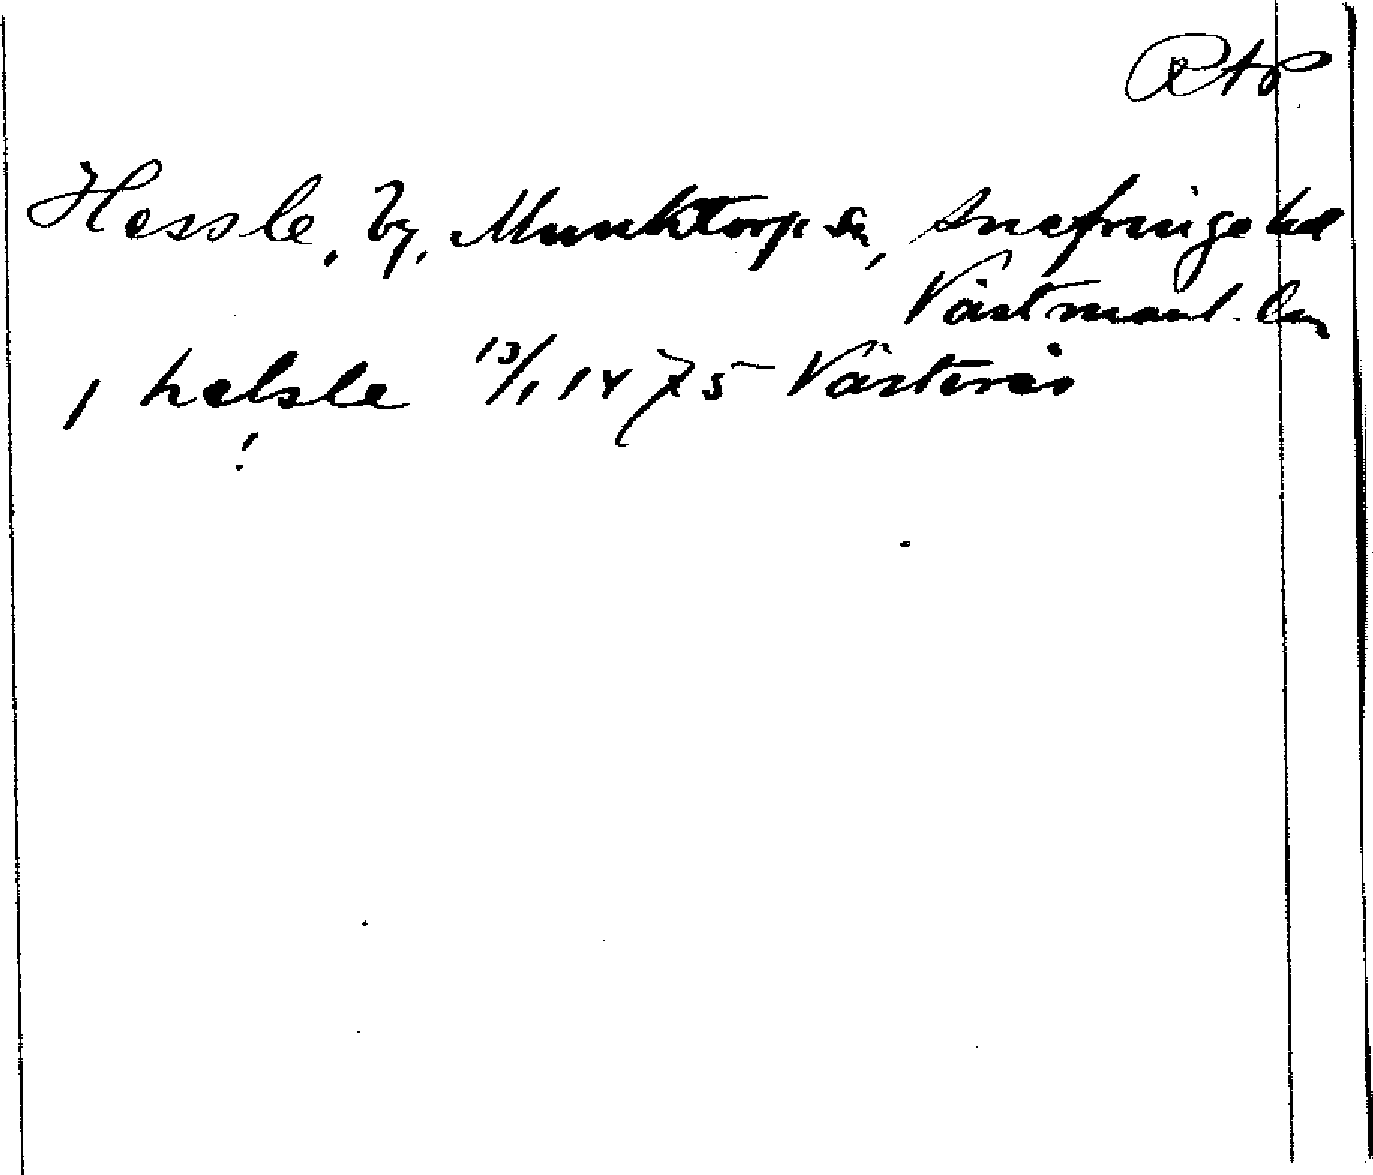 RAP.
Hessle, by, Munktorp sn, Snefringe hd
Västmanl. län
i helsle 13/1 1475 Västerås
!